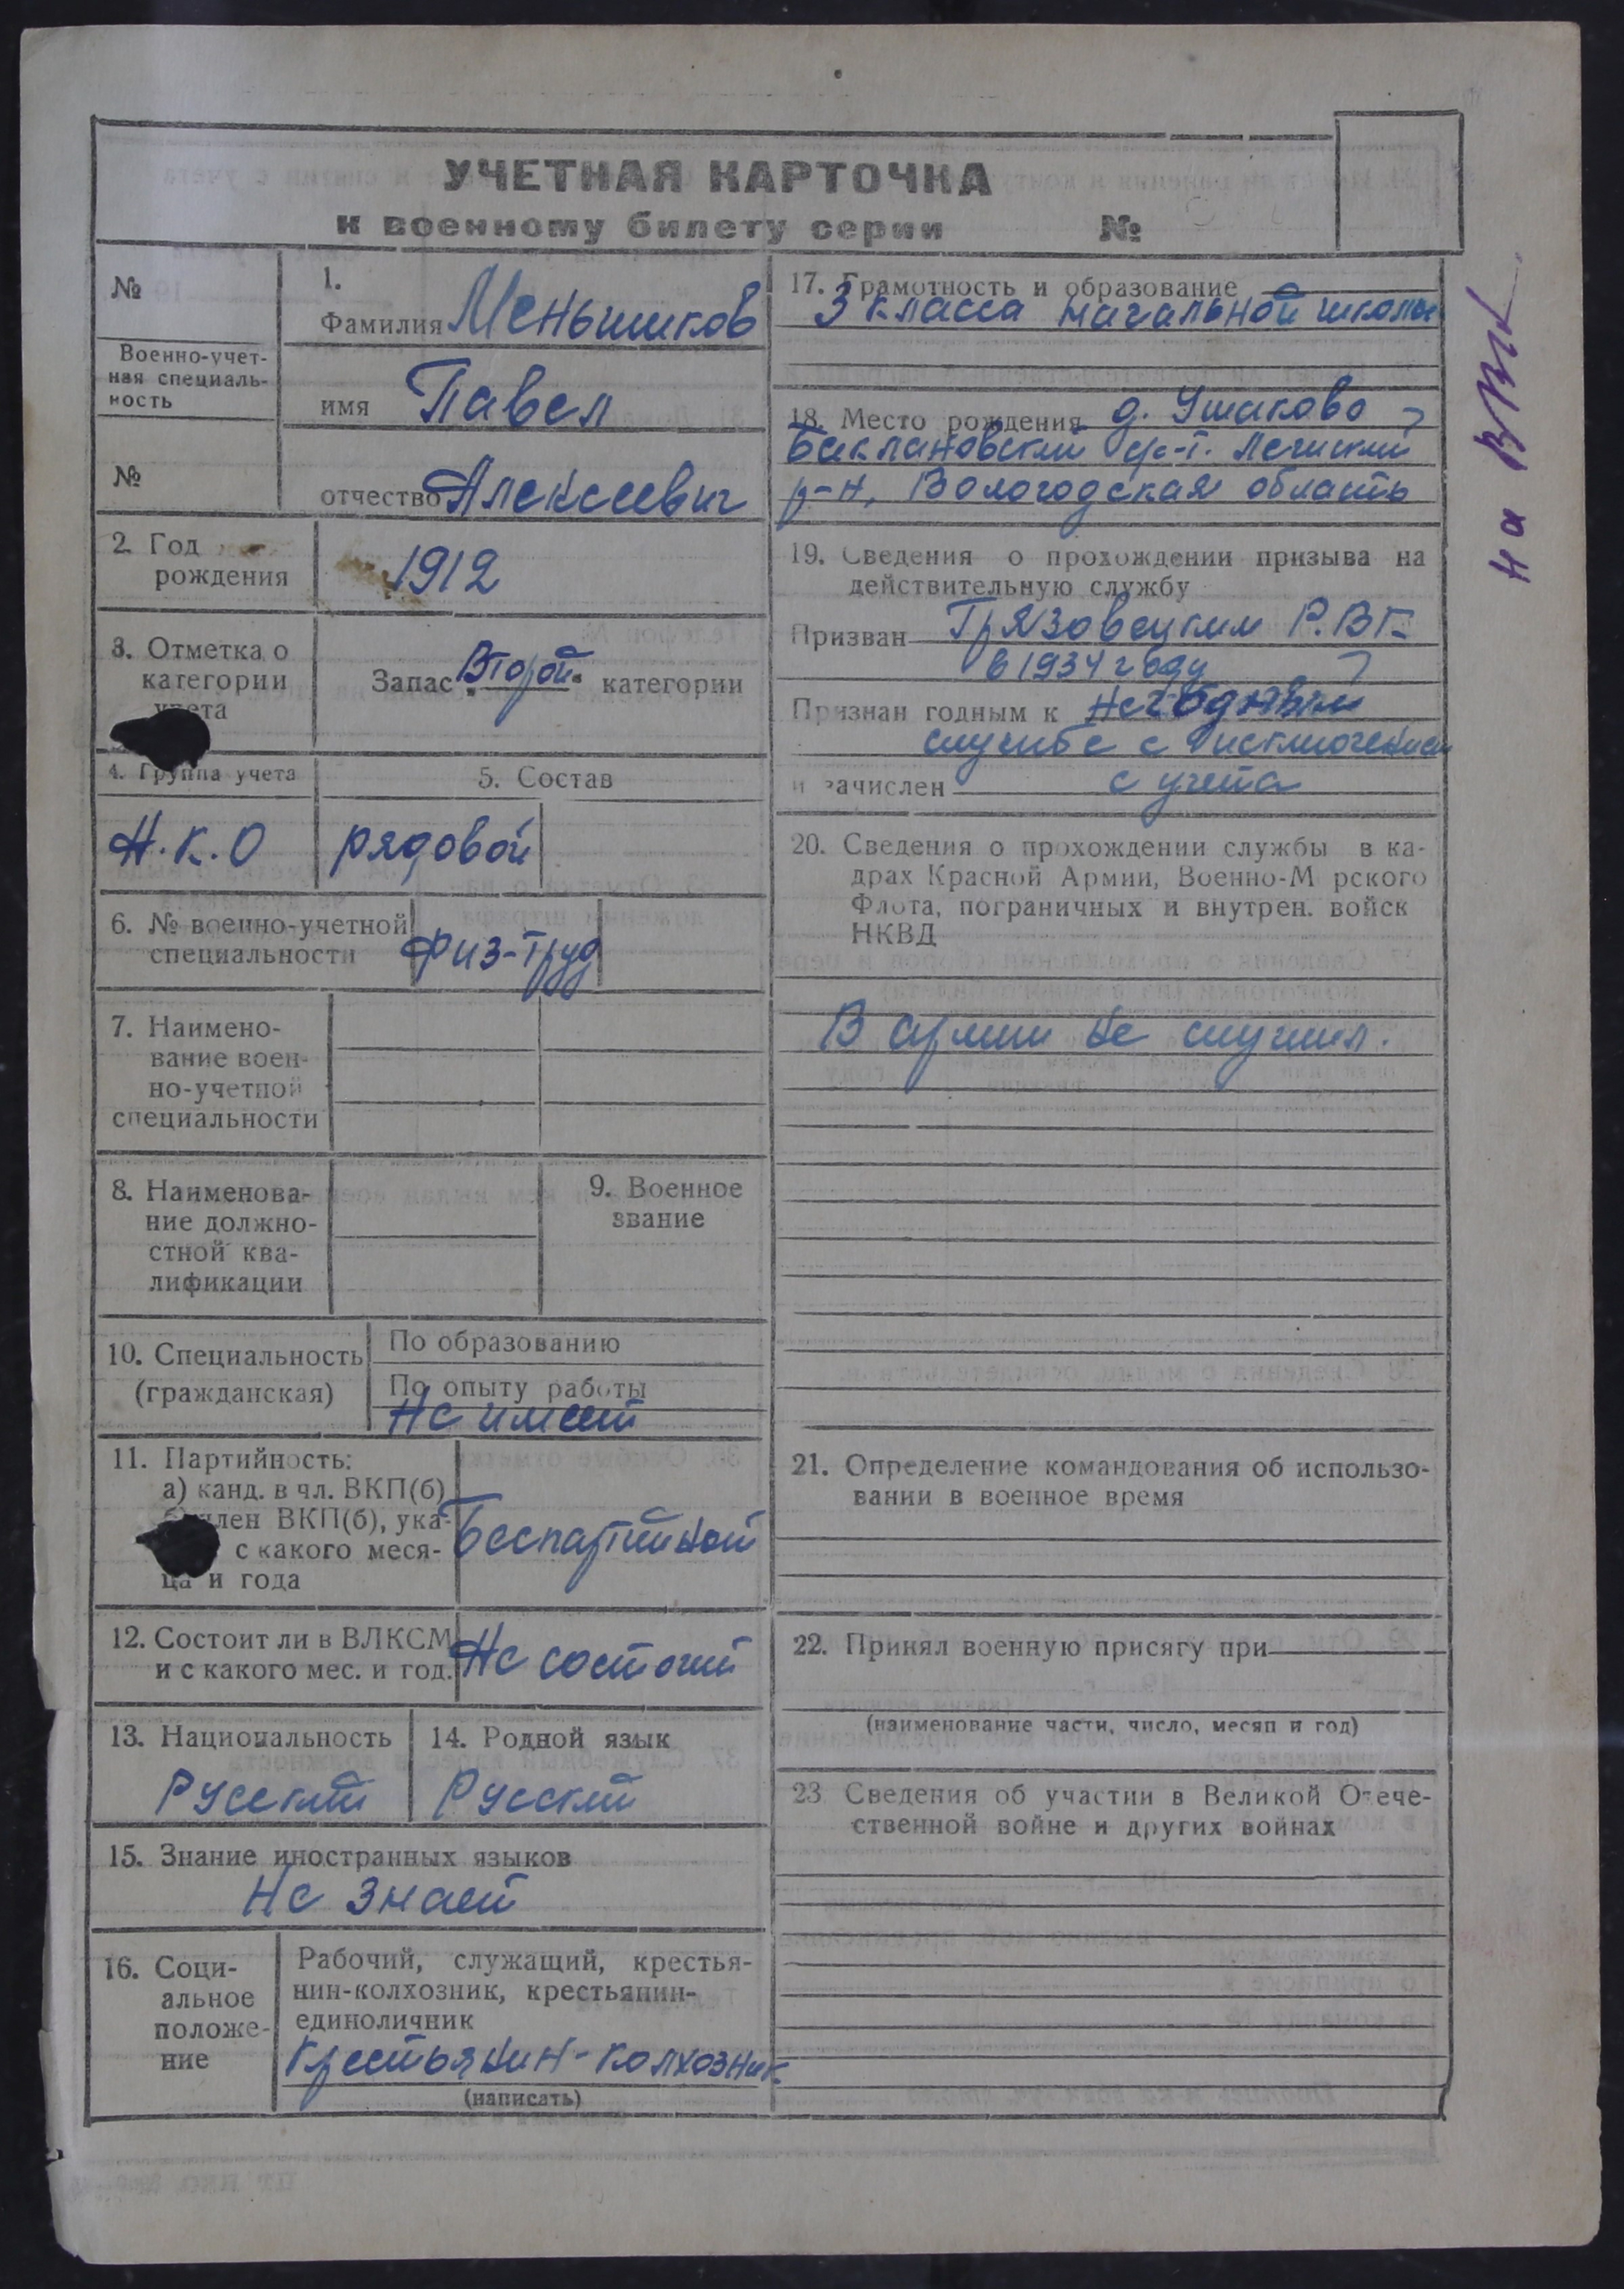 УЧЕТНАЯ КАРТОЧКА
к военному билету серии №
№
1.
Фамилия Меньшиков
Военно-учет-
ная специаль-
ность
имя Павел
№
отчество Алексеевич
2. Год
рождения
1912
3. Отметка о
категории
учета
Запас Второй категории
4. Группа учета
5. Состав
Н.К.О
рядовой
6. № военно-учетной
специальности
физ-труд
7. Наимено-
вание воен-
но-учетной
специальности
8. Наименова-
ние должно-
стной ква-
лификации
9. Военное
звание
10. Специальность
(гражданская)
По образованию
По опыту работы
Не имеет
11. Партийность:
а) канд. в чл. ВКП(б)
член ВКП(б), ука-
с какого меся-
ца и года
Беспартийной
12. Состоит ли в ВЛКСМ
и с какого мес. и год.
Не состоит
13. Национальность
Русский
14. Родной язык
Русский
15. Знание иностранных языков
Не знает
16. Соци-
альное
положе-
ние
Рабочий, служащий, крестья-
нин-колхозник, крестьянин-
единоличник
Крестьянин-колхозник
(написать)
17. Грамотность и образование
3 класса начальной школы
18. Место рождения д. Ушаково
Баклановский с-т.
р-н, Вологодская область
19. Сведения о прохождении призыва на
действительную службу
Призван Грязовецким Р.В.К.
в 1934 году
Признан годным к Негодным
службе с исключением
и зачислен с учета
20. Сведения о прохождении службы в ка-
драх Красной Армии, Военно-М рского
Флота, пограничных и внутрен. войск
НКВД
В армии не служил.
21. Определение командования об использо-
вании в военное время
22. Принял военную присягу при
(наименование части, число, месяц и год)
23 Сведения об участии в Великой Отече-
ственной войне и других войнах
на